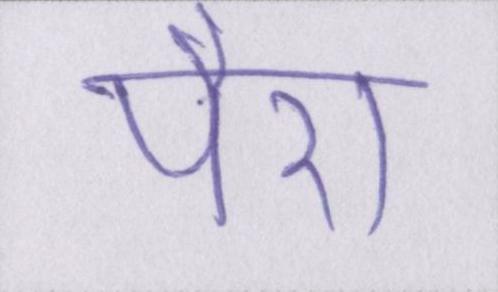 पैरा